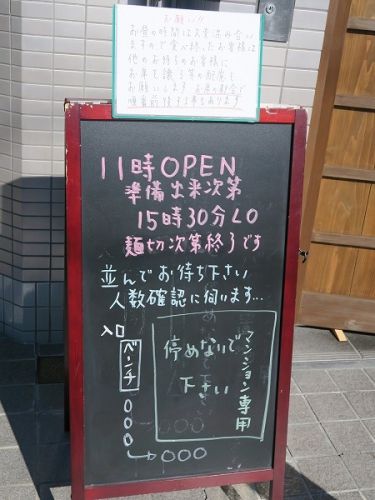 お願い!!
お昼の時間は大変混み合い
ますので食べ終ったお客様は
他のお待ちのお客様に
お席を譲る等の配慮を
お願いします お店の都合で
順番前後する事もあります
11時OPEN
準備出来次第
15時30分LO
麺切次第終了です
並んでお待ち下さい
人数確認に伺います...
入口
ベンチ
○○○
○○○
停めないで
下さい
マンション専用